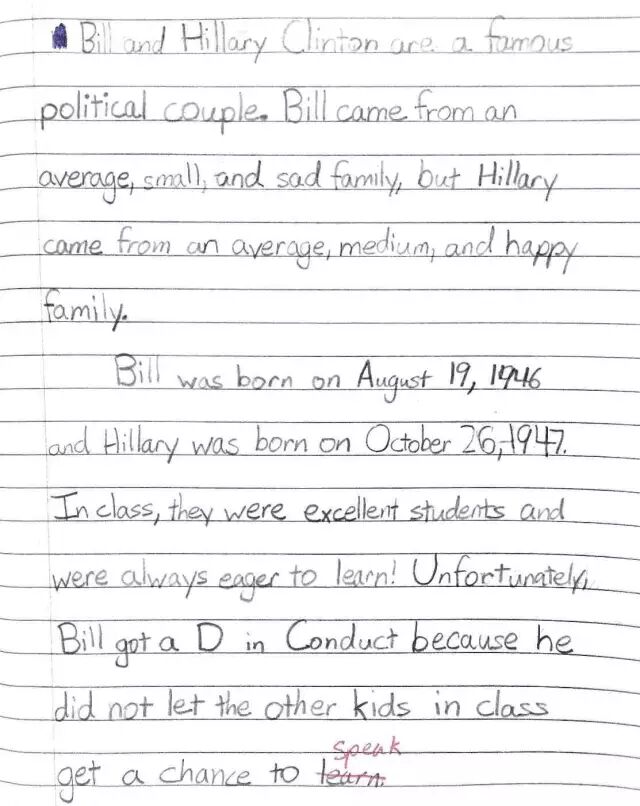 Bill and Hillary Clinton are a famous
political couple. Bill came from an
average, small, and sad family, but Hillary
came from an average, medium, and happy
family.
Bill was born on August 19, 1946
and Hillary was born on October 26, 1947.
In class, they were excellent students and
were always eager to learn! Unfortunately,
Bill got a D in Conduct because he
did not let the other kids in class
speak
get a chance to learn.